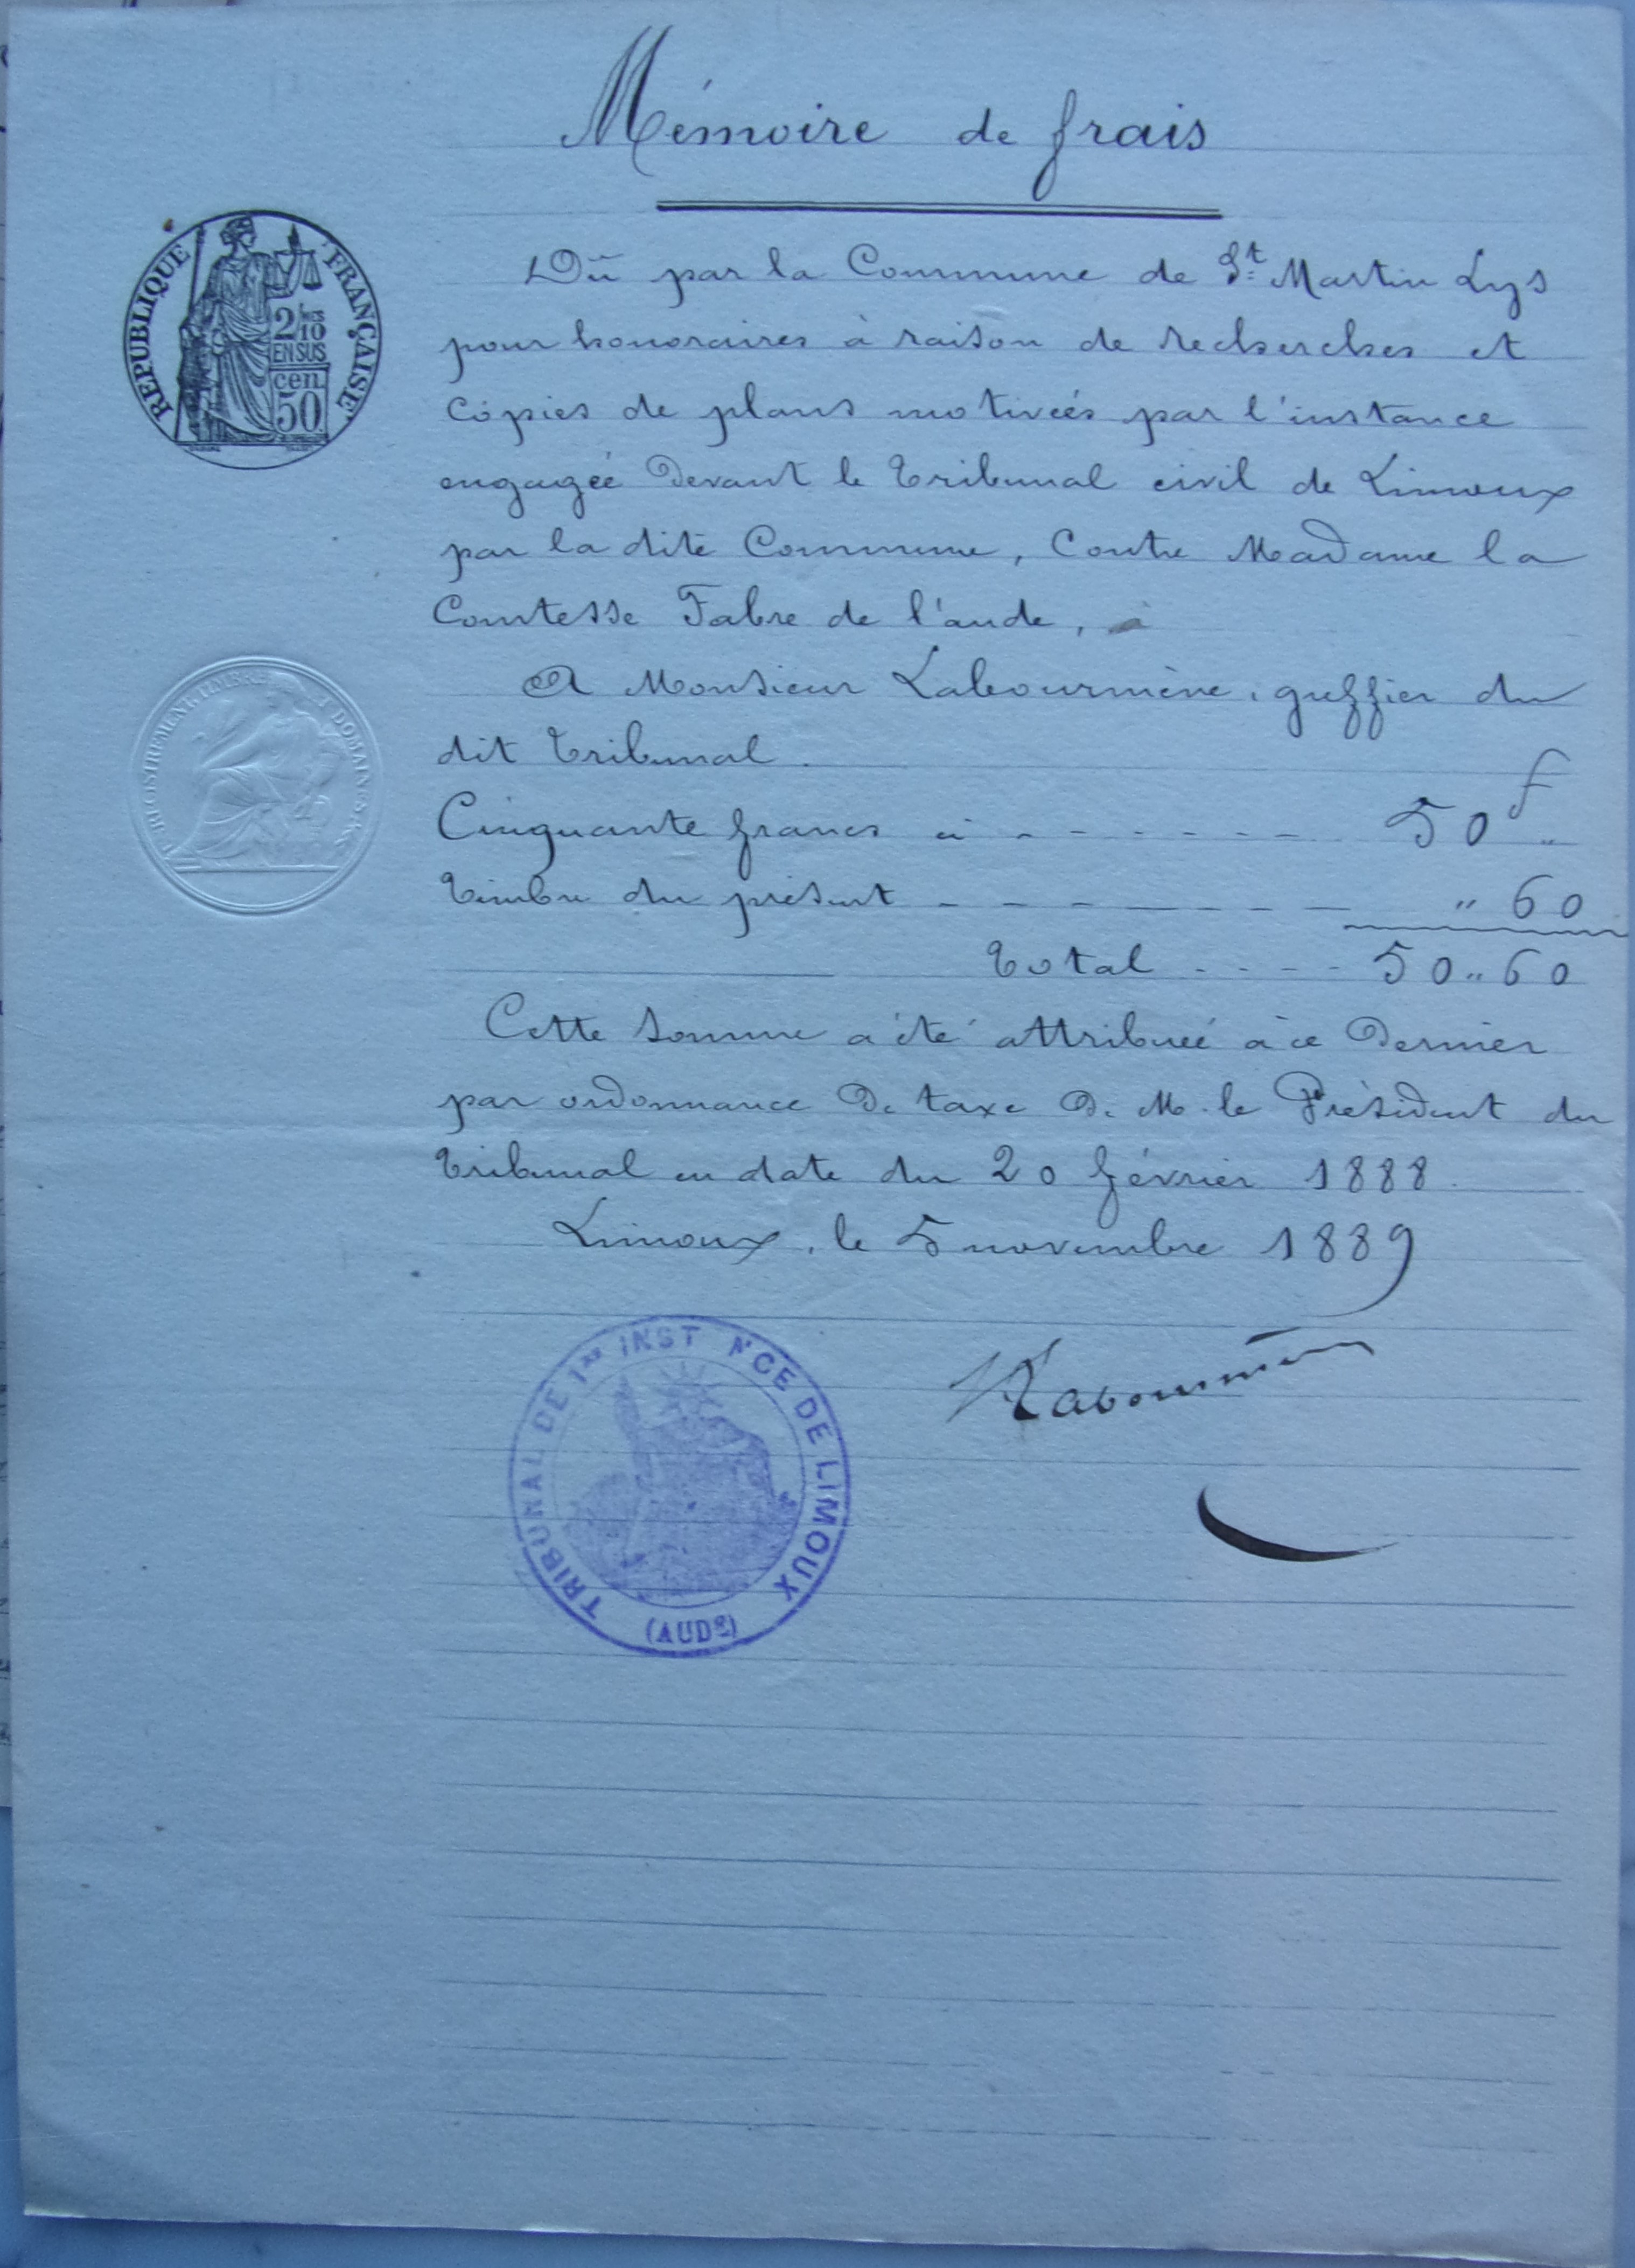 Mémoire de frais
REPUBLIQUE FRANÇAISE
2 /10
EN SUS
cen
50
Dû par la Commune de St Martin Lys
pour honoraires à raison de recherches et
copies de plans motivées par l'instance
engagée devant le tribunal civil de Limoux
par la dite Commune, contre Madame la
Comtesse Fabre de l'aude, à
ENREGISTREMENT TIMBRE ET DOMAINES
A Monsieur Labourmène, greffier du
dit tribunal.
Cinquante francs ci - - - - - - - 50 f "
timbre du présent - - - - - - - " 60
total - - - - 50 " 60
Cette somme a été attribuée à ce dernier
par ordonnance de taxe de M. le Président du
tribunal en date du 20 février 1888.
Limoux, le 5 novembre 1889
TRIBUNAL DE 1re INST NCE DE LIMOUX
(AUDE)